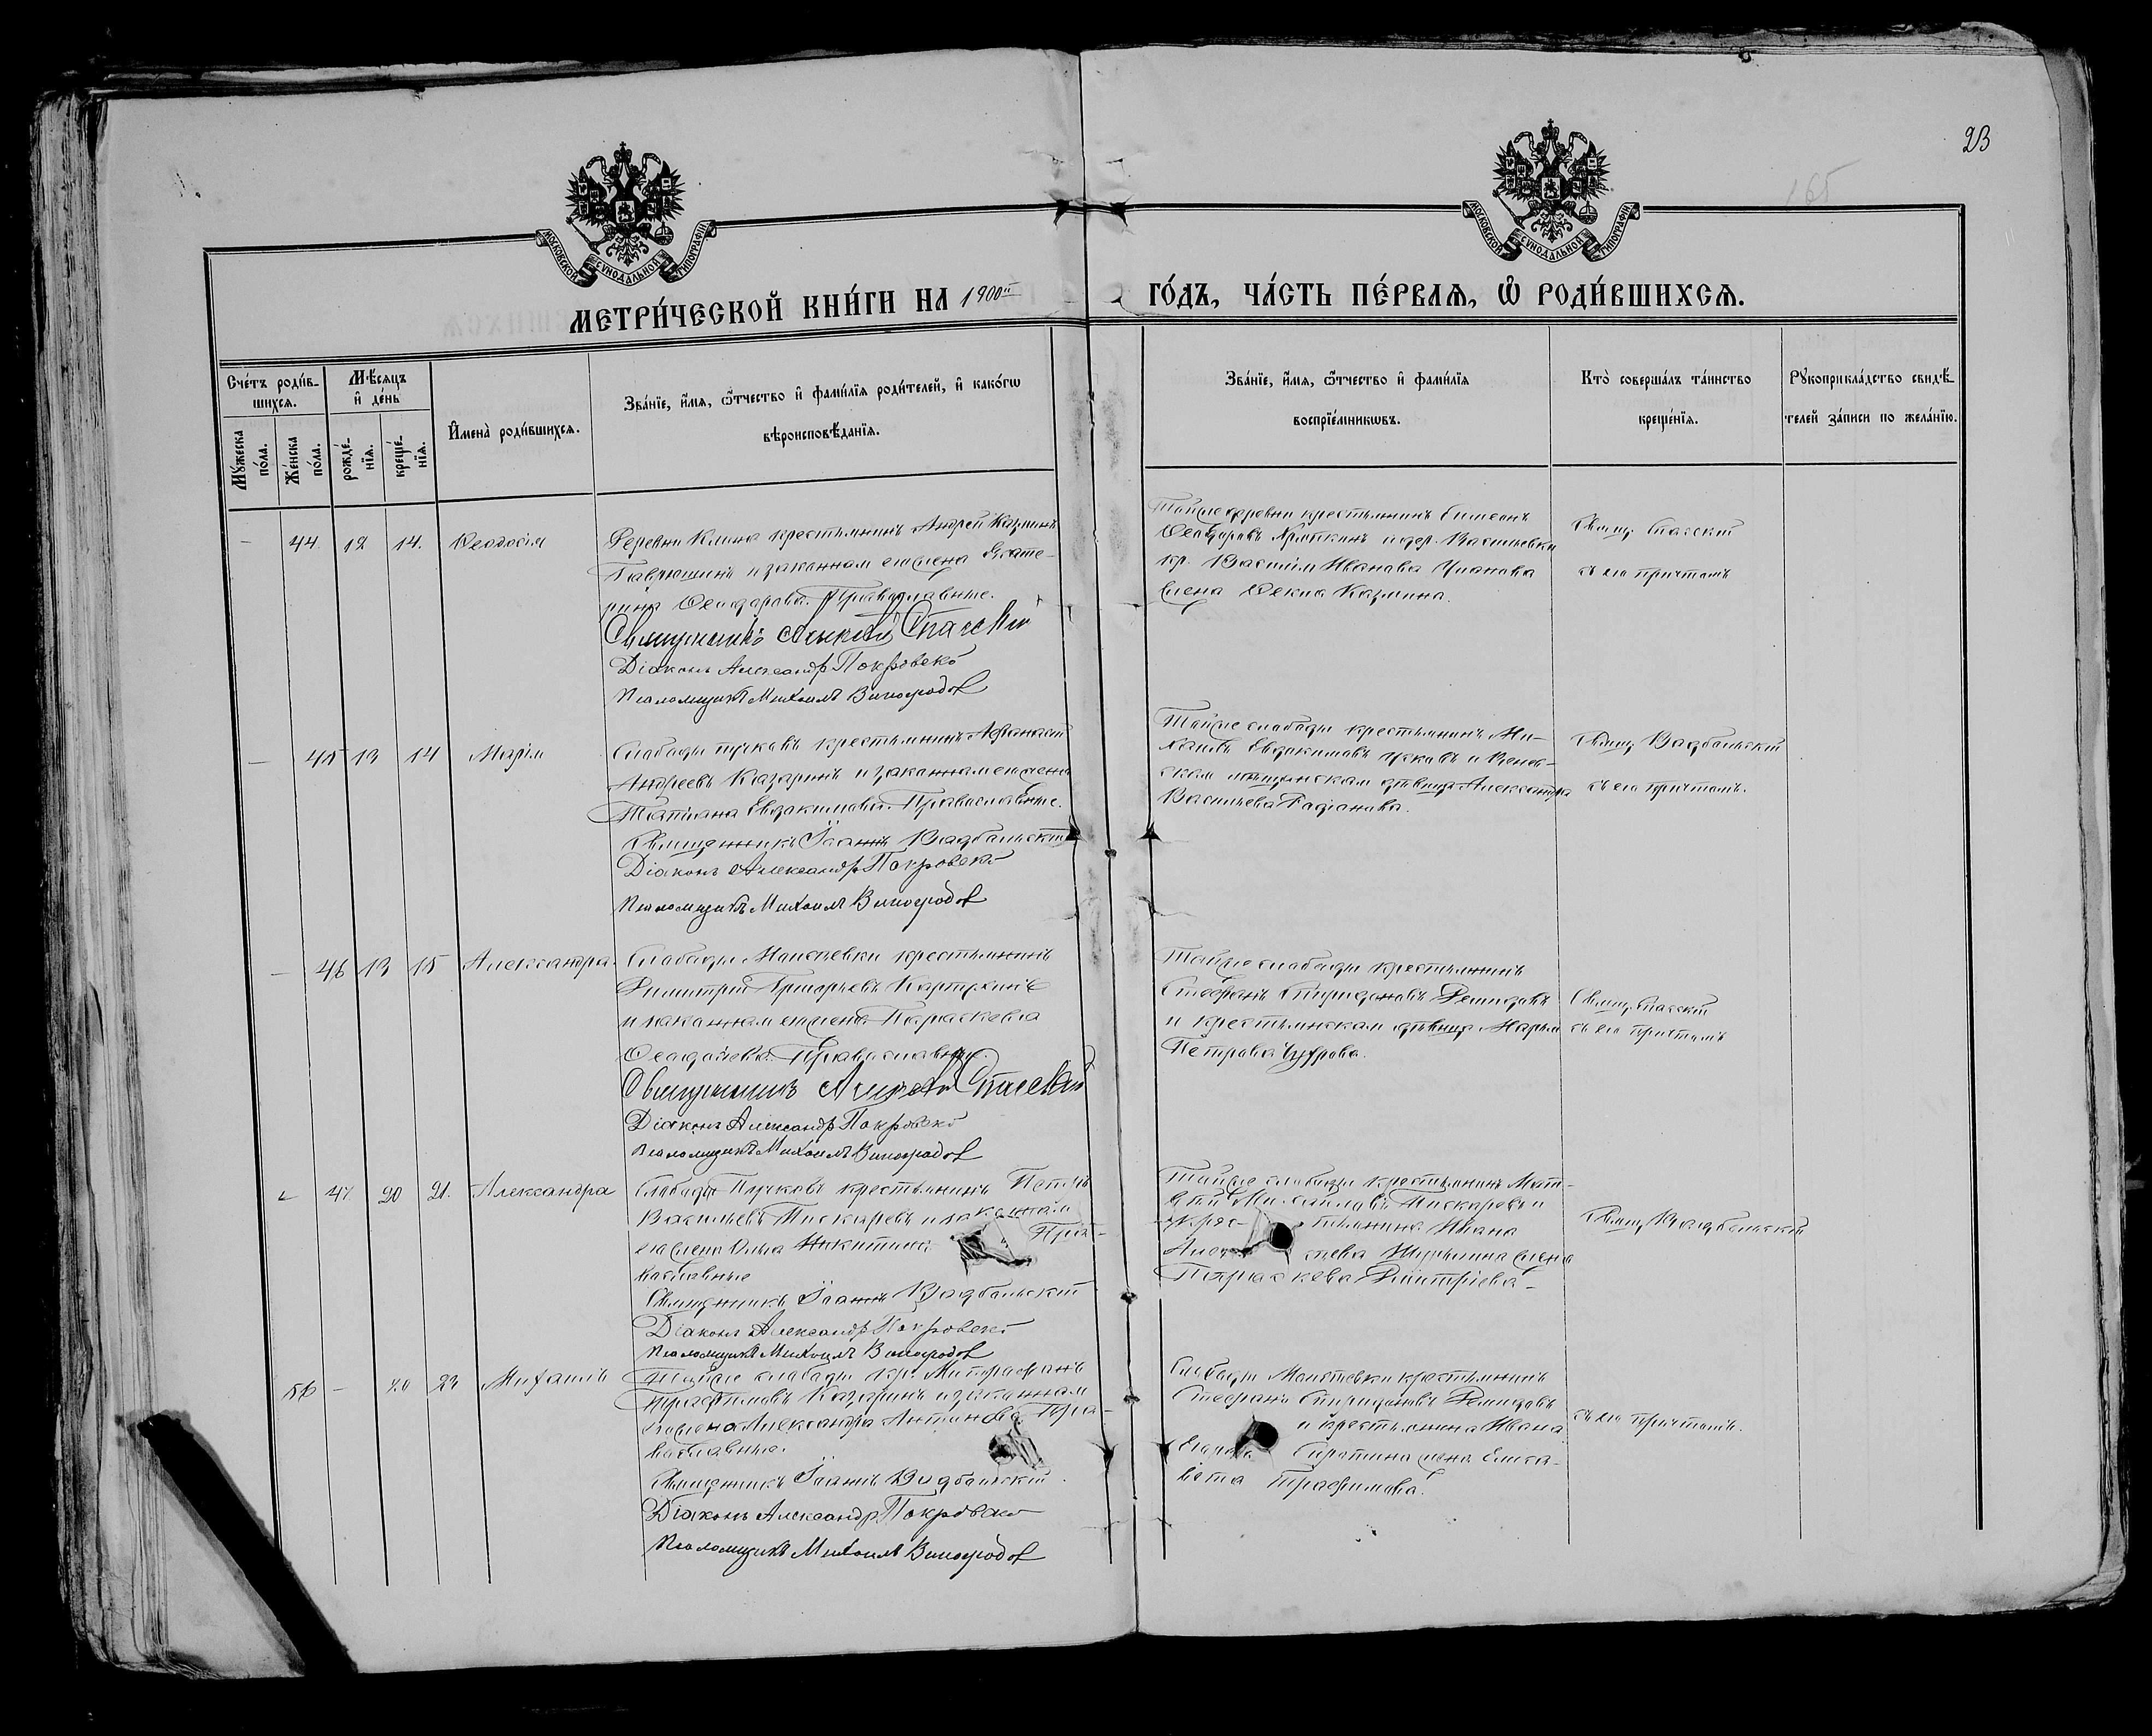 23
165
МОСКОВСКОЙ СѴНОДАЛЬНОЙ ТИПОГРАФІИ
МОСКОВСКОЙ СѴНОДАЛЬНОЙ ТИПОГРАФІИ
МЕТРИ́ЧЕСКОЙ КНИ́ГИ НА 1900й ГО́ДЪ, ЧА́СТЬ ПЕ́РВАЯ, Ѡ҆ РОДИ́ВШИХСЯ.
Сче́тъ роди́в-
шихся.
Мꙋ́жеска по́ла.
Же́нска по́ла.
Мѣ́сяцъ
и҆ де́нь
рожде́-
нїя.
креще́-
нїя.
И҆мена̀ роди́вшихся.
Зва́нїе, и҆́мя, ѻ҆́тчество и҆ фамѝлїя роди́телей, и҆ како́гѡ
вѣроисповѣ́данїя.
Зва́нїе, и҆́мя, ѻ҆́тчество и҆ фами́лїя
воспрїе́мникѡвъ.
Кто̀ соверша́лъ та́инство
креще́нїя.
Рꙋкоприкла́дство свидѣ́-
телей за́писи по жела́нїю.
- 44 12 14. Ѳеодосія
Деревни крестьянинъ Андрей Казминъ
и законная его жена Екате-
рина Ѳеодорова. Православные.
Священникъ Алексѣй Спасскій
Діаконъ Александръ Покровскій
Псаломщикъ Михаилъ Виноградовъ
Тойже деревни крестьянинъ Симеонъ
Ѳеодоровъ и дер. Васильевки
кр. Василія Иванова
жена Ѳекла Казмина.
Свящ. Спасскій
съ его причтомъ
- 45 13 14 Марія
Слободы крестьянинъ Аѳанасій
Андреевъ Казаринъ и законная его жена
Татіана Евдокимова. Православные.
Священникъ Іоаннъ Вадбальскій
Діаконъ Александръ Покровскій
Псаломщикъ Михаилъ Виноградовъ
Тойже слободы крестьянинъ Ми-
хаилъ Евдокимовъ и
ская мѣщанская дѣвица Александра
Васильева
Свящ. Вадбальскій
съ его причтомъ.
- 46 13 15 Александра
Слободы Моисеевки крестьянинъ
Димитрій Григорьевъ
и законная его жена Параскева
Православные.
Священникъ Алексѣй Спасскій
Діаконъ Александръ Покровскій
Псаломщикъ Михаилъ Виноградовъ
Тойже слободы крестьянинъ
Стефанъ Спиридоновъ Демидовъ
и крестьянская дѣвица Марія
Петрова
Свящ. Спасскій
съ его причтомъ
- 47 20 21. Александра
Слободы крестьянинъ Петръ
Васильевъ Пискаревъ и законная
его жена Ольга Никитина Пра-
вославные
Священникъ Іоаннъ Вадбальскій
Діаконъ Александръ Покровскій
Псаломщикъ Михаилъ Виноградовъ
Тойже слободы крестьянинъ Мат-
Пискаревъ и
крестьянина Ивана
жена
Параскева Димитріева
Свящ. Вадбальскій
56 - 20 23 Михаилъ
Тойже слободы кр. Митрофанъ
Казаринъ и законная
его жена Александра Антонова Пра-
вославные.
Священникъ Іоаннъ Вадбальскій
Діаконъ Александръ Покровскій
Псаломщикъ Михаилъ Виноградовъ
Слободы Моисеевки крестьянинъ
Стефанъ Спиридоновъ Демидовъ
и крестьянина Ивана
Сиротина жена Елиса-
вета Трофимова.
съ его причтомъ.